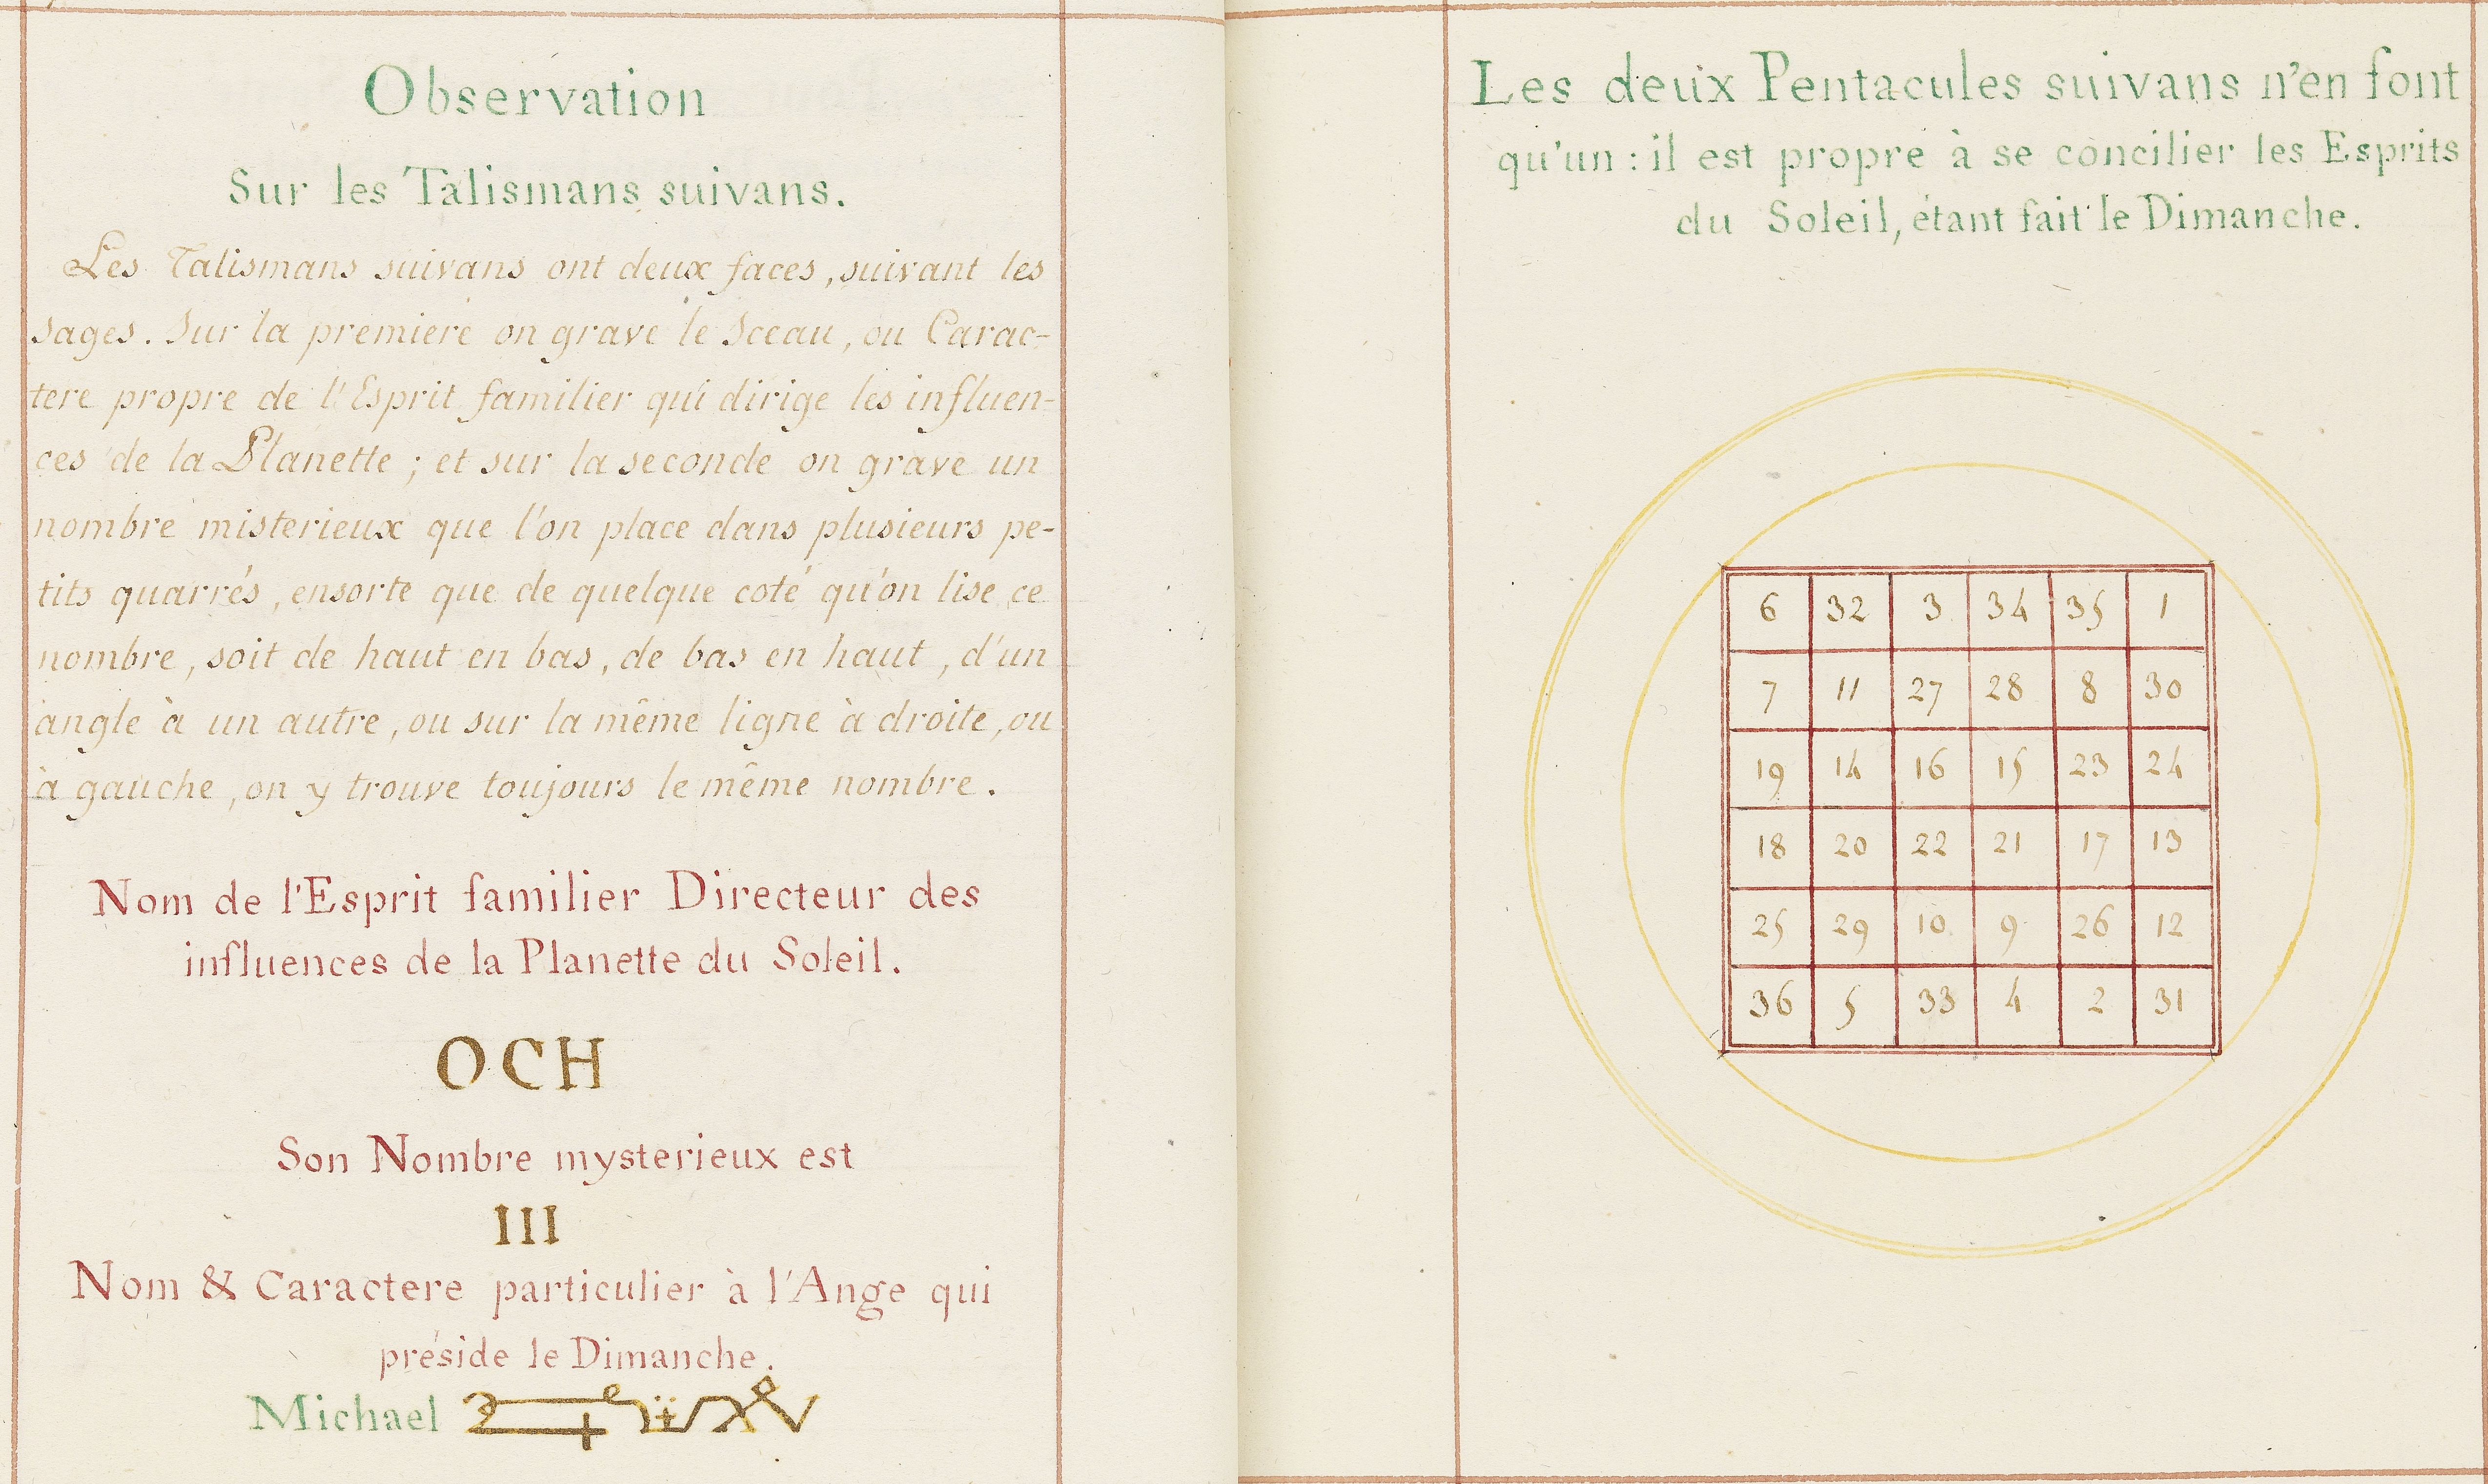 Observation
Sur les Talismans suivans.
Les Talismans suivans ont deux faces, suivant les
sages. Sur la premiere on grave le Sceau, ou Carac-
tere propre de l'Esprit familier qui dirige les influen-
ces de la Planette ; et sur la seconde on grave un
nombre misterieux que l'on place dans plusieurs pe-
tits quarrés, ensorte que de quelque coté qu'on lise ce
nombre, soit de haut en bas, de bas en haut, d'un
angle à un autre, ou sur la même ligne à droite, ou
à gauche, on y trouve toujours le même nombre.
Nom de l'Esprit familier Directeur des
influences de la Planette du Soleil.
OCH
Son Nombre mysterieux est
III
Nom & Caractere particulier à l'Ange qui
préside le Dimanche.
Michael
Les deux Pentacules suivans n'en font
qu'un : il est propre à se concilier les Esprits
du Soleil, étant fait le Dimanche.
6 32 3 34 35 1
7 11 27 28 8 30
19 14 16 15 23 24
18 20 22 21 17 13
25 29 10 9 26 12
36 5 33 4 2 31